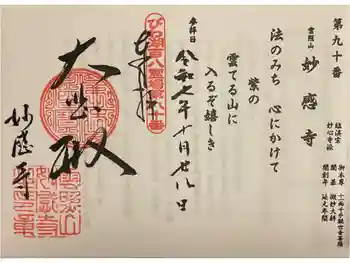 第九十番
雲照山 妙感寺
臨済宗
妙心寺派
御本尊 十一面千手観世音菩薩
開基 微妙大師
開創年 延文年間
法のみち 心にかけて
紫の
雲てる山に
入るぞ嬉しき
参拝日
令和七年十月廿八日
びわ湖百八霊場第九十番
奉拝
大悲殿
妙感寺
雲照山
妙感寺